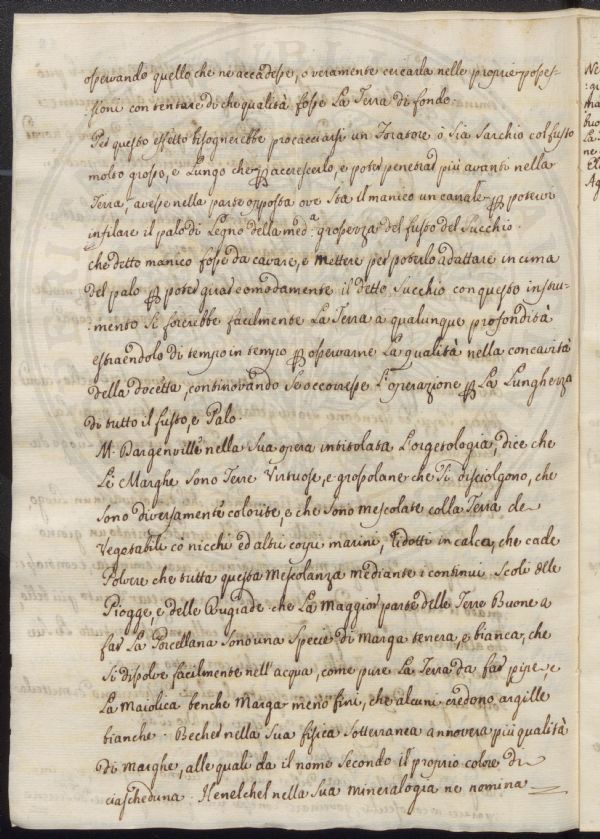 osservando quello che ne accadesse, o veramente cercarla nelle proprie posses-
:sioni con tentare di che qualità fosse La Terra di fondo.
Per questo effetto bisognerebbe procacciarsi un Foratore ò Sia Sarchio col fusto
molto grosso, e Lungo che p accrescerlo, e poter penetrar più avanti nella
Terra, avesse nella parte opposta ove Sta il manico un canale p potervi
infilare il palo di Legno della med.a grossezza del fusto del Succhio.
che detto manico fosse da cavare, e mettere per poterlo adattare in cima
del palo p poter girar comodamente il detto Succhio con questo instru-
:mento Si forerebbe facilmente La Terra a qualunque profondità
estraendolo di tempo in tempo p osservarne La qualità nella concavità
della docetta, continovando Se occorresse L'operazione p La Lunghezza
di tutto il fusto, e Palo.
M. Dargenville nella Sua opera intitolata L'orgetologia, dice che
Le Marghe Sono Terre Virtuose, e grossolane che Si disciolgono, che
Sono diversamente colorite, e che Sono mescolate colla Terra de
Vegetabili có nicchi ed altri corpi marini, ridotti in calce, che cade
Polvere che tutta questa Mescolanza mediante i continui Scoli delle
Piogge, e delle Rugiade che La Maggior parte delle Terre Buone a
far La Porcellana Sono una Specie di Marga tenera, e bianca, che
Si dissolve facilmente nell'acqua, come pure La Terra da far pipe, e
La Maiolica benche Marga meno fini, che alcuni credono argille
bianche. Becher nella Sua fisica Sotterranea annovera più qualità
di Marghe, alle quali da il nome Secondo il proprio colore di
ciascheduna. Henelchel nella Sua mineralogia ne nomina